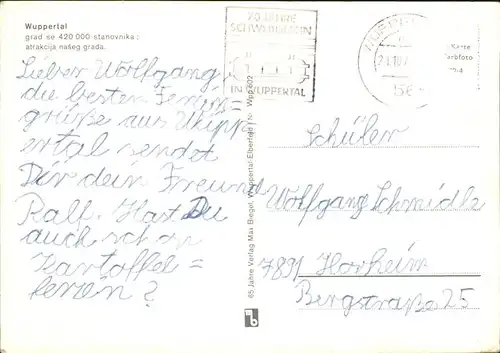 Wuppertal
grad se 420 000 stanovnika:
atrakcija našeg grada.
Lieber Wolfgang
die besten Ferien=
grüße aus Wupp
ertal sendet
Dir dein Freund
Ralf. Hast Du
auch schon
Kartoffel=
ferien?
70 JAHRE
SCHWEBEBAHN
IN WUPPERTAL
65 Jahre Verlag Max Biegel, Wuppertal-Elberfeld
Schüler
Wolfgang Schmidle
7891 Horheim
Bergstraße 25